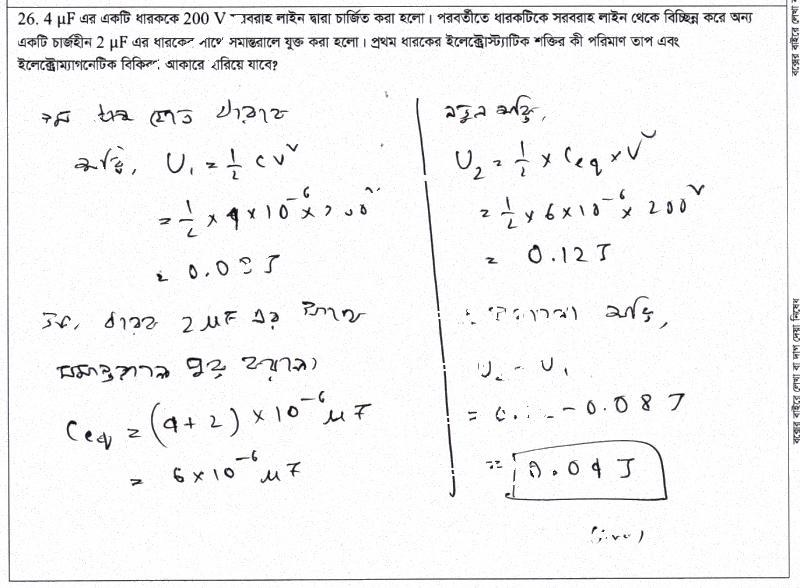 26. 4 μF এর একটি ধারককে 200 V সরবরাহ লাইন দ্বারা চার্জিত করা হলো। পরবর্তীতে ধারকটিকে সরবরাহ লাইন থেকে বিচ্ছিন্ন করে অন্য
একটি চার্জহীন 2 μF এর ধারকের সাথে সমান্তরালে যুক্ত করা হলো। প্রথম ধারকের ইলেক্ট্রোস্ট্যাটিক শক্তির কী পরিমাণ তাপ এবং
ইলেক্ট্রোম্যাগনেটিক বিকিরণ আকারে হারিয়ে যাবে?
শক্তি, U₁ = ½ CV²
= ½ × 4 × 10⁻⁶ × 200²
= 0.08 J
ধারক 2 μF এর সাথে
সমান্তরালে যুক্ত করলে
Ceq = (4 + 2) × 10⁻⁶ μF
= 6 × 10⁻⁶ μF
নতুন শক্তি,
U₂ = ½ × Ceq × V²
= ½ × 6 × 10⁻⁶ × 200²
= 0.12 J
শক্তি,
U₂ - U₁
= 0. - 0.08 J
= 0.04 J
বক্সের বাইরে লেখা বা দাগ দেয়া নিষেধ